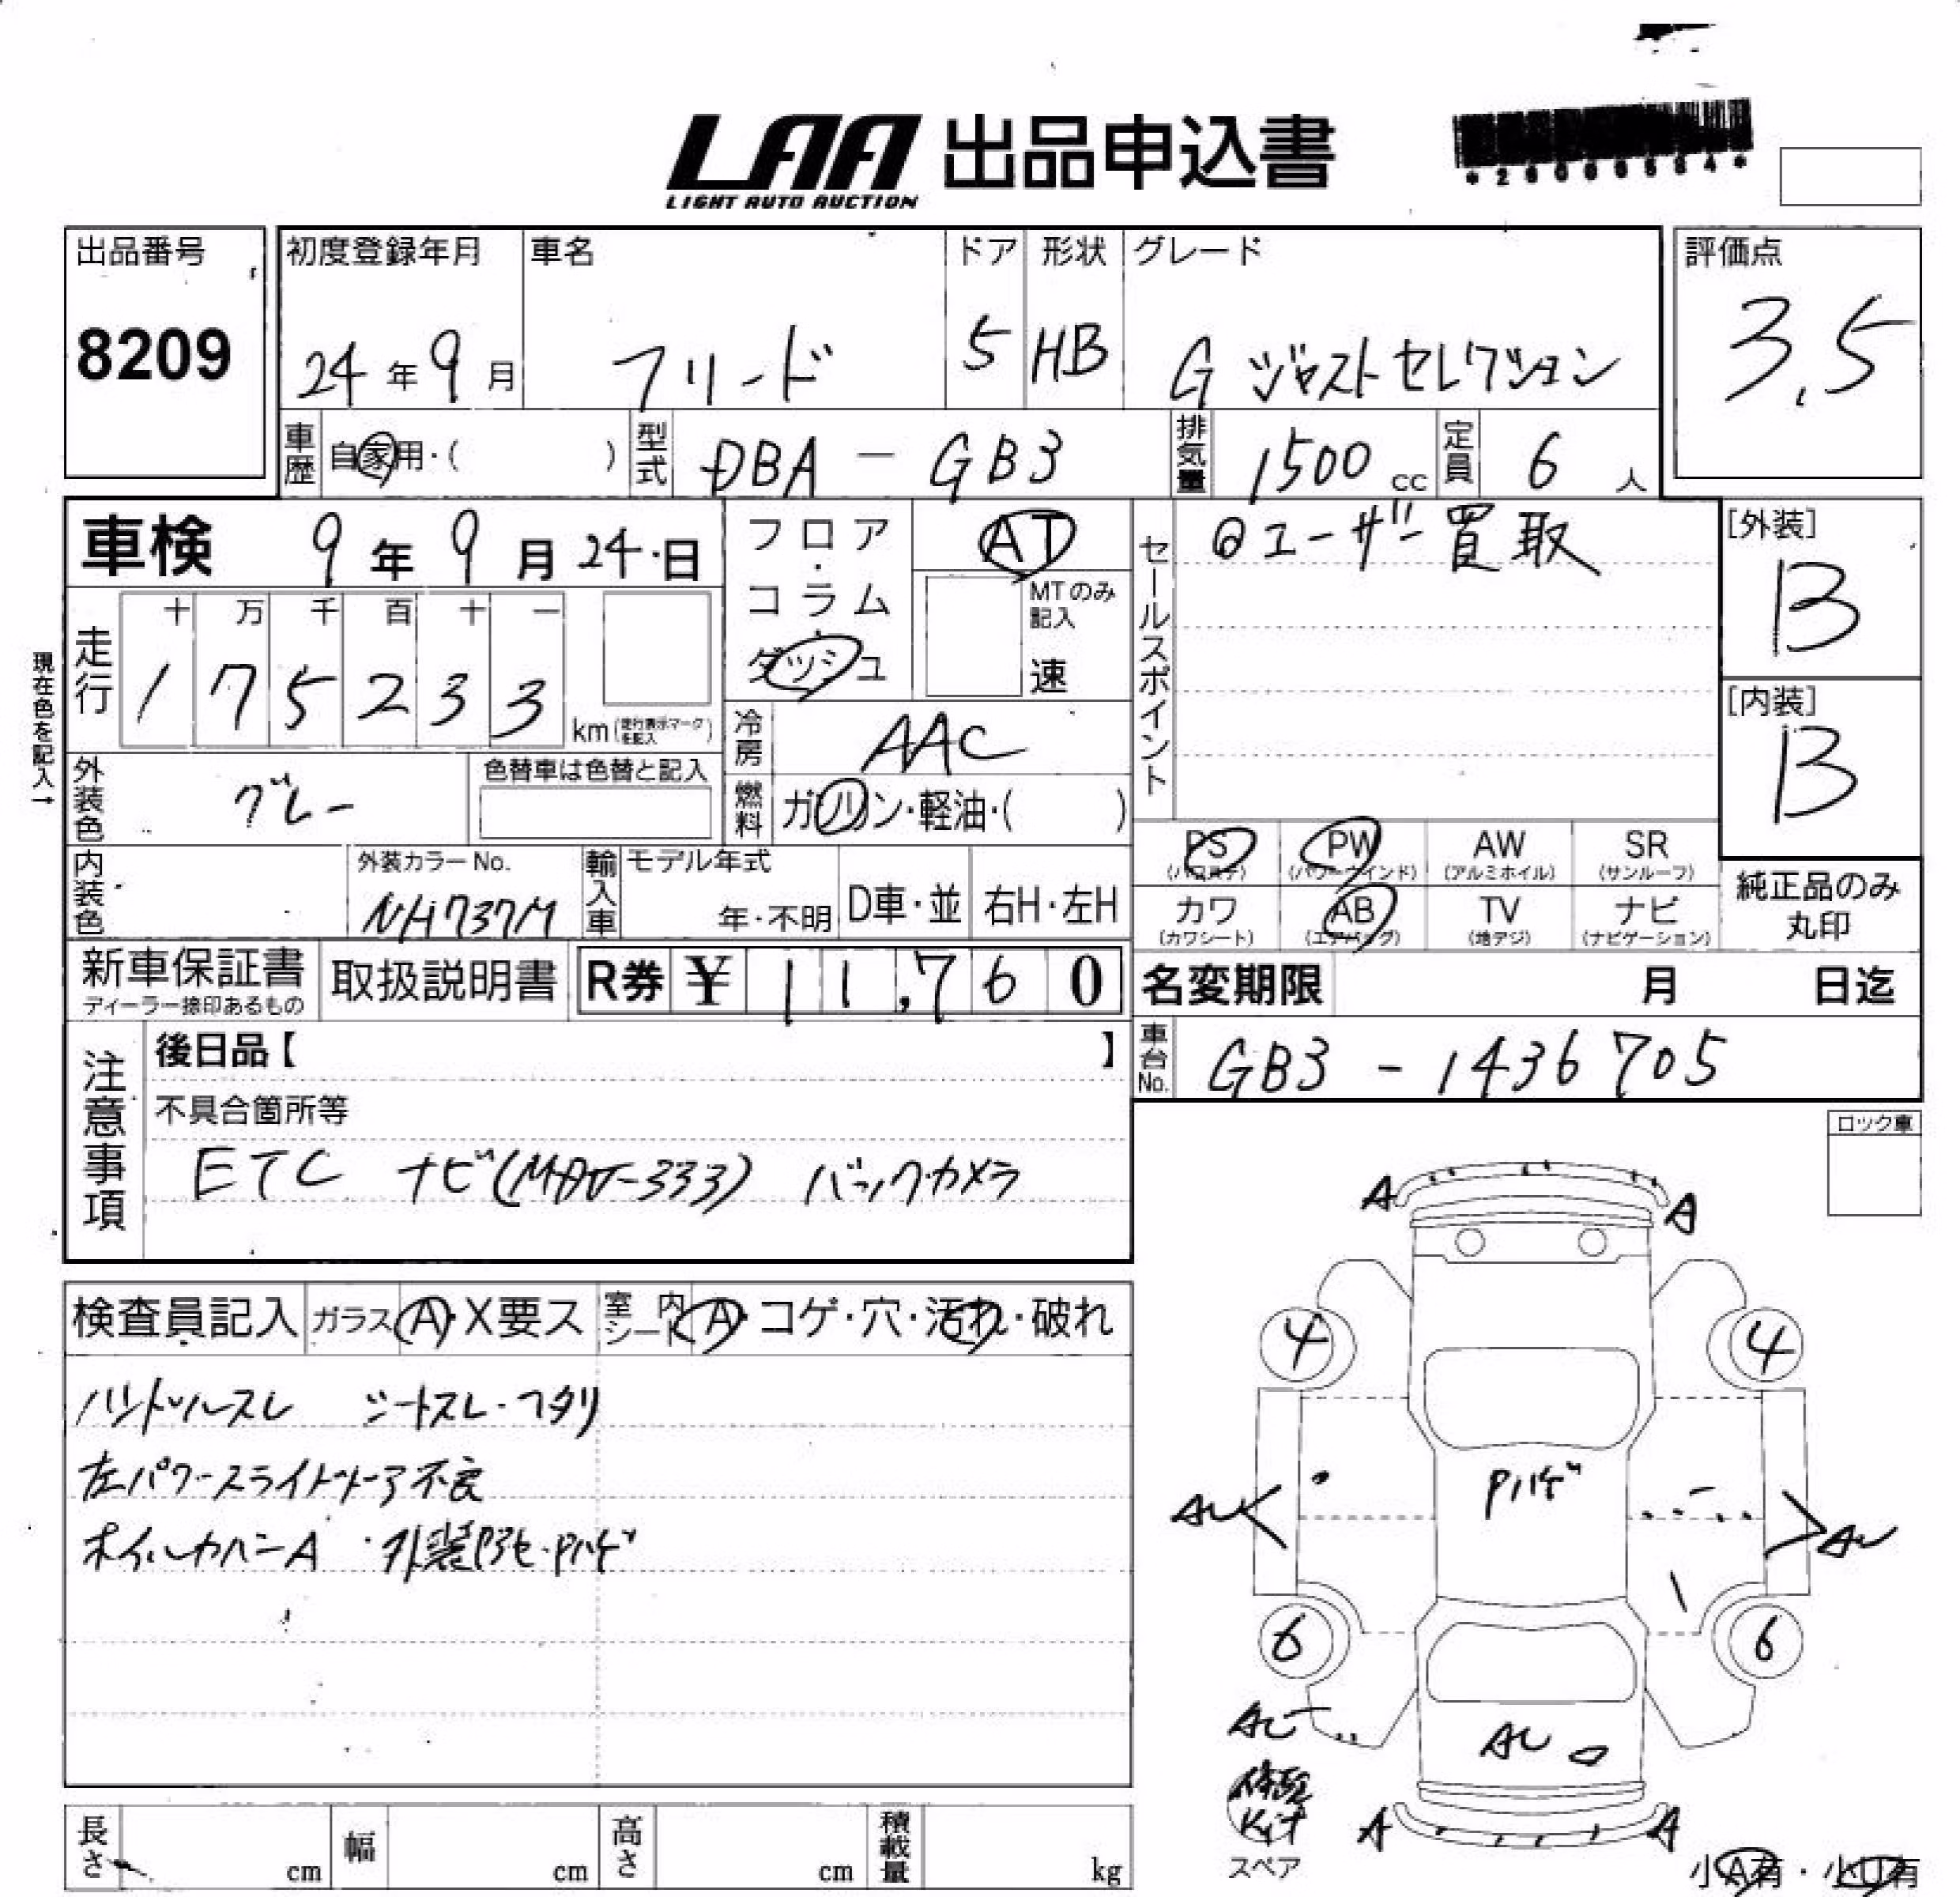 LAA 出品申込書
LIGHT AUTO AUCTION
出品番号
8209
初度登録年月
24年9月
車名
フリード
ドア
5
形状
HB
グレード
G ジャストセレクション
評価点
3.5
車歴
自家用・( )
型式
DBA-GB3
排気量
1500cc
定員
6人
車検 9年9月24日
フロア・コラム・ダッシュ
AT
MTのみ記入
速
セールスポイント
◎ユーザー買取
[外装]
B
[内装]
B
現在色を記入→
走行
十 万 千 百 十 一
1 7 5 2 3 3 km(走行表示マークを記入)
冷房
AAC
外装色
グレー
色替車は色替と記入
燃料
ガソリン・軽油・( )
PS
(パワステ)
PW
(パワーウインド)
AW
(アルミホイル)
SR
(サンルーフ)
カワ
(カワシート)
AB
(エアバッグ)
TV
(地デジ)
ナビ
(ナビゲーション)
純正品のみ
丸印
内装色
外装カラーNo.
NH737M
輸入車
モデル年式
年・不明
D車・並
右H・左H
新車保証書
ディーラー捺印あるもの
取扱説明書
R券 ¥ 11,760
名変期限 月 日迄
車台No.
GB3-1436705
注意事項
後日品【 】
不具合箇所等
ETC ナビ(MDV-333) バックカメラ
ロック車
検査員記入
ガラス A・X要ス
室内シート A・コゲ・穴・汚れ・破れ
ハンドルスレ シートスレ・ヘタリ
左パワースライドドア不良
ホイルカバーA ・外装色アセ・Pハゲ
A A
4 4
Pハゲ
AU AU
6 6
AU
AU
修理
Kit
スペア
A A
小A有・小U有
長さ cm
幅 cm
高さ cm
積載量 kg